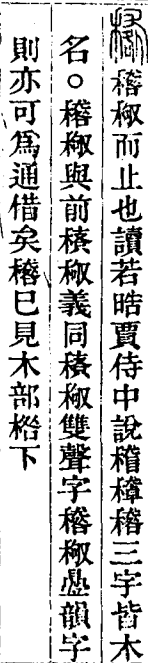 𥡴𥡴䅩而止也讀若晧賈侍中說稽𥡜𥡴三字皆木
名○𥡴䅩與前𥠻䅩義同𥠻䅩雙聲字𥡴䅩疊韻字
則亦可爲通借矣𥡴已見木部榙下